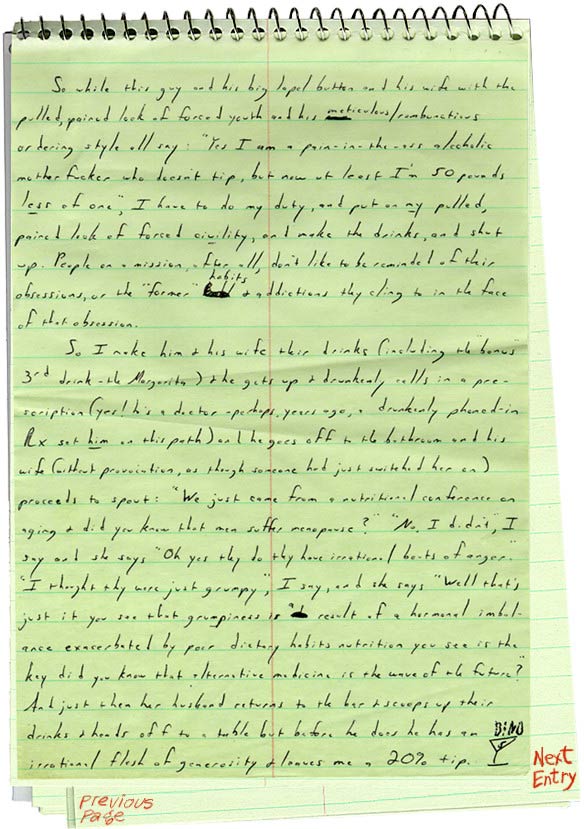 So while this guy and his big lapel button and his wife with the
pulled, pained look of forced youth and his meticulous/rambunctious
ordering style all say: "Yes I am a pain-in-the-ass alcoholic
motherfucker who doesn't tip, but now at least I'm 50 pounds
less of one", I have to do my duty, and put on my pulled,
pained look of forced civility, and make the drinks, and shut
up. People on a mission, after all, don't like to be reminded of their
habits
obsessions, or the "former" & addictions they cling to in the face
of that obsession.
So I make him & his wife their drinks (including the "bonus"
3rd drink - the Margarita) & he gets up & drunkenly calls in a pre-
scription (yes! he's a doctor - perhaps, years ago, a drunkenly phoned-in
Rx set him on this path) and he goes off to the bathroom and his
wife (without provocation, as though someone had just switched her on)
proceeds to spout: "We just came from a nutritional conference on
aging & did you know that men suffer menopause?" "No, I didn't", I
say and she says "Oh yes they do they have irrational bouts of anger."
"I thought they were just grumpy", I say, and she says "Well that's
just it you see that grumpiness is a result of a hormonal imbal-
ance exacerbated by poor dietary habits nutrition you see is the
key did you know that alternative medicine is the wave of the future?"
And just then her husband returns to the bar & scoops up their
drinks & heads off to a table but before he does he has an
irrational flash of generosity & leaves me a 20% tip.
BiNO
Next
Entry
Previous
Page